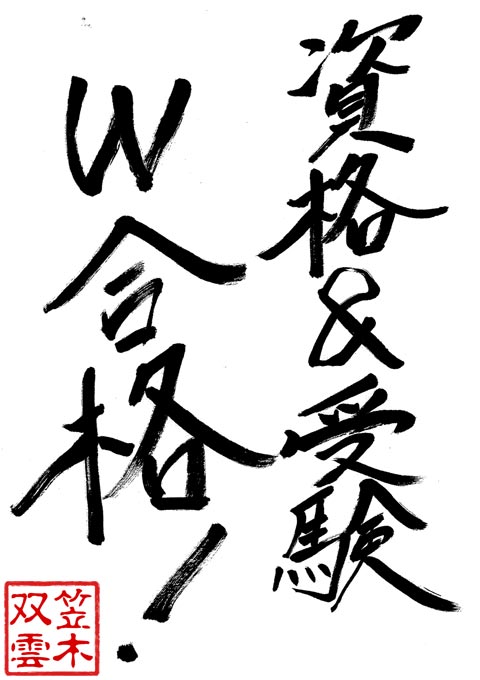 資格&受験
W合格!
笠木
双雲